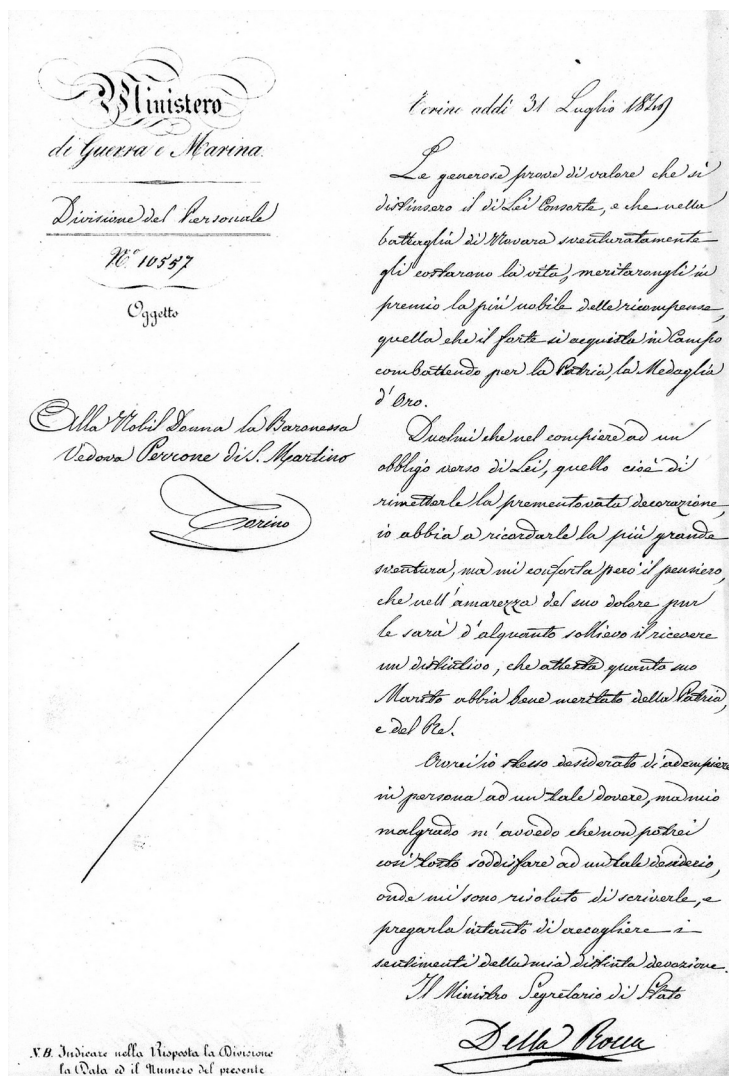 Ministero
di Guerra e Marina.
Divisione del Personale
N.º 10557
Oggetto
Alla Nobil Donna la Baronessa
Vedova Perrone di S. Martino
Torino
N.B. Indicare nella Risposta la Divisione
la Data ed il Numero del presente
Torino addì 31 Luglio 1849
Le generose prove di valore che sì
distinsero il di Lei Consorte, e che nella
battaglia di Novara sventuratamente
gli costarono la vita, meritarongli in
premio la più nobile delle ricompense,
quella che il forte si acquista in Campo
combattendo per la Patria, la Medaglia
d'Oro.
Duolmi che nel compiere ad un
obbligo verso di Lei, quello cioè di
rimetterle la prementovata decorazione,
io abbia a ricordarle la più grande
sventura, ma mi conforta però il pensiero,
che nell'amarezza del suo dolore pur
le sarà d'alquanto sollievo il ricevere
un distintivo, che attesta quanto suo
Marito abbia bene meritato della Patria,
e del Re.
Avrei io stesso desiderato di adempiere
in persona ad un tale dovere, ma mio
malgrado m'avvedo che non potrei
così tosto soddisfare ad un tale desiderio,
onde mi sono risoluto di scriverle, e
pregarla intanto di accogliere i
sentimenti della mia distinta devozione.
Il Ministro Segretario di Stato
Della Rocca